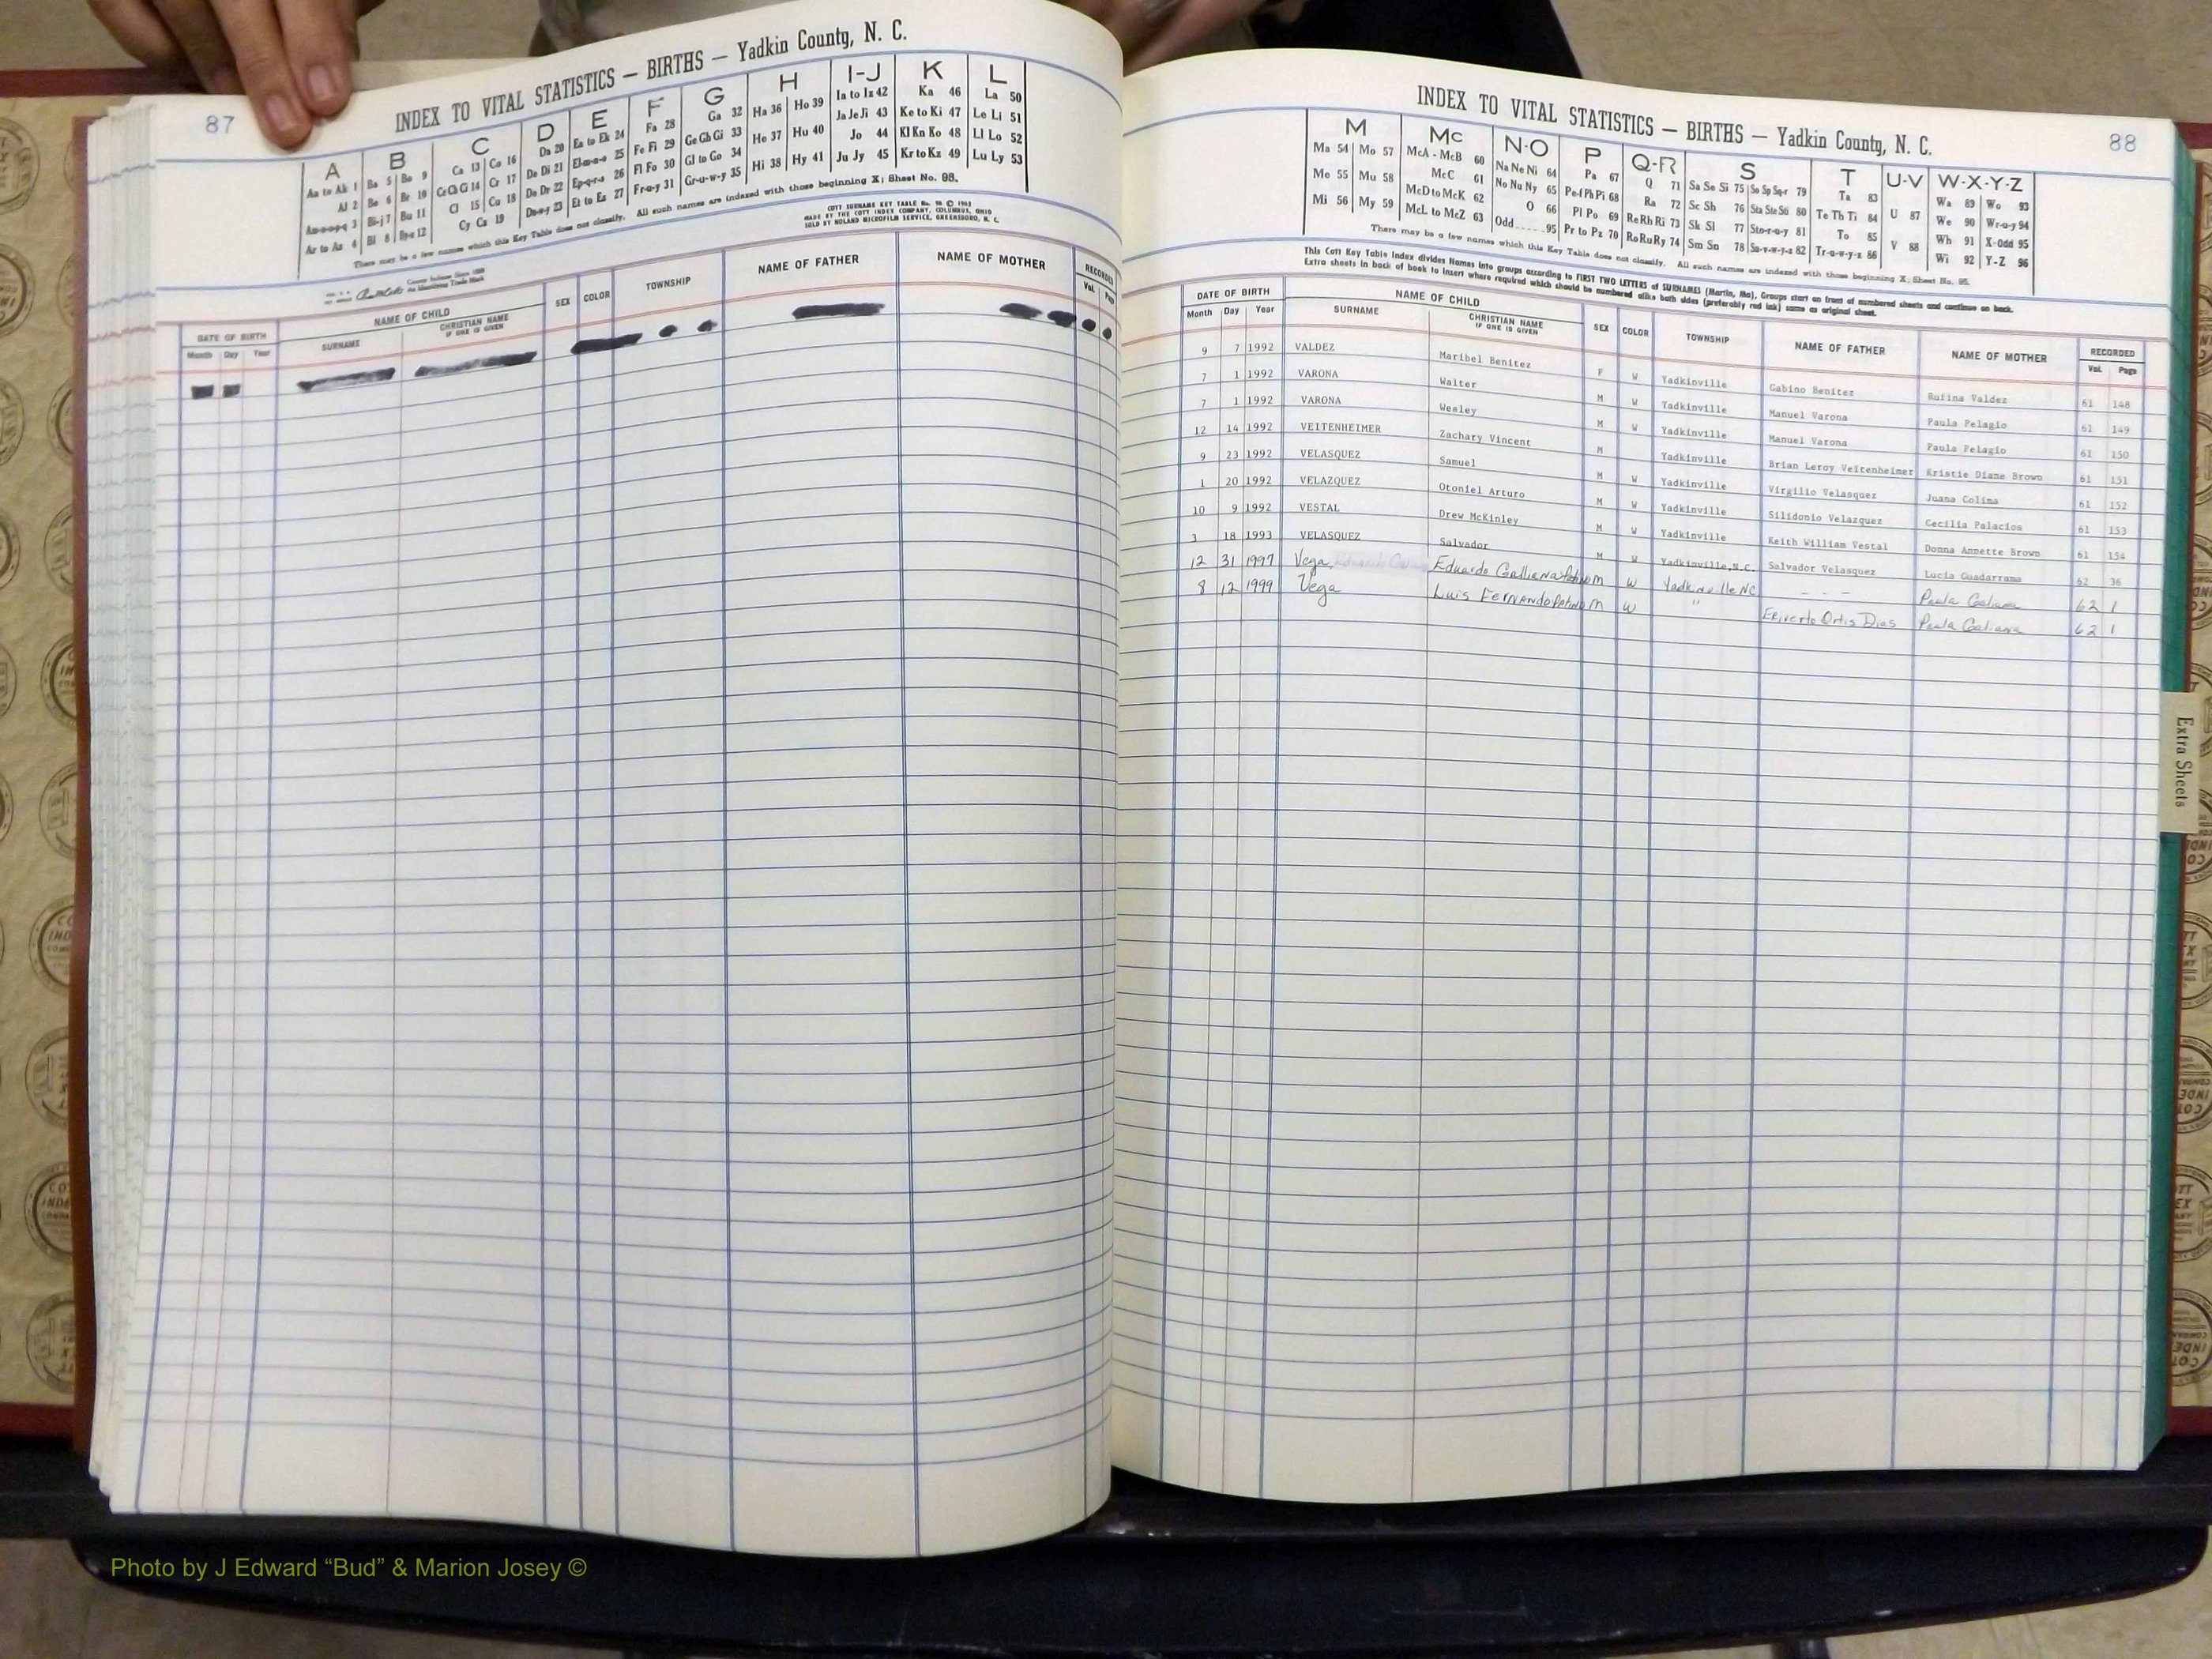 87
INDEX TO VITAL STATISTICS — BIRTHS — Yadkin County, N. C.
A B C D E F G H I-J K L
Aa to Ak 1 Ba 5 Bo 9 Ca 13 Co 16 Da 20 Ea to Ek 24 Fa 28 Ga 32 Ha 36 Ho 39 Ia to Iz 42 Ka 46 La 50
Al 2 Be 6 Br 10 Ce Ch Ci 14 Cr 17 De Di 21 El-m-n-o 25 Fe Fi 29 Ge Gh Gi 33 He 37 Hu 40 Ja Je Ji 43 Ke to Ki 47 Le Li 51
Am-n-o-p-q 3 Bi-j 7 Bu 11 Cl 15 Cu 18 Do Dr 22 Ep-q-r-s 26 Fl Fo 30 Gl to Go 34 Hi 38 Hy 41 Jo 44 Kl Kn Ko 48 Ll Lo 52
Ar to Az 4 Bl 8 By-z 12 Cy Cz 19 Du-w-y 23 Et to Ez 27 Fr-u-y 31 Gr-u-w-y 35 Ju Jy 45 Kr to Kz 49 Lu Ly 53
There may be a few names which this Key Table does not classify. All such names are indexed with those beginning X; Sheet No. 95.
COTT SURNAME KEY TABLE No. 96 © 1963
MADE BY THE COTT INDEX COMPANY, COLUMBUS, OHIO
SOLD BY NOLAND MICROFILM SERVICE, GREENSBORO, N. C.
County Indexes Since 1888
An Identifying Trade Mark
DATE OF BIRTH NAME OF CHILD SEX COLOR TOWNSHIP NAME OF FATHER NAME OF MOTHER RECORDED
Month Day Year SURNAME CHRISTIAN NAME IF ONE IS GIVEN Vol. Page
INDEX TO VITAL STATISTICS — BIRTHS — Yadkin County, N. C.
88
M Mc N-O P Q-R S T U-V W-X-Y-Z
Ma 54 Mo 57 McA - McB 60 Na Ne Ni 64 Pa 67 Q 71 Sa Se Si 75 So Sp Sq-r 79 Ta 83 U 87 Wa 89 Wo 93
Me 55 Mu 58 McC 61 No Nu Ny 65 Pe-f Ph Pi 68 Ra 72 Sc Sh 76 Sta Ste Sti 80 Te Th Ti 84 V 88 We 90 Wr-u-y 94
Mi 56 My 59 McD to McK 62 O 66 Pl Po 69 Re Rh Ri 73 Sk Sl 77 Sto-r-u-y 81 To 85 Wh 91 X-Odd 95
McL to McZ 63 Odd 95 Pr to Pz 70 Ro Ru Ry 74 Sm Sn 78 Su-v-w-y-z 82 Tr-u-w-y-z 86 Wi 92 Y-Z 96
There may be a few names which this Key Table does not classify. All such names are indexed with those beginning X; Sheet No. 95.
This Cott Key Table Index divides Names into groups according to FIRST TWO LETTERS of SURNAMES (Martin, Ma), Groups start on front of numbered sheets and continue on back.
Extra sheets in back of book to insert where required which should be numbered alike both sides (preferably red ink) same as original sheet.
DATE OF BIRTH NAME OF CHILD SEX COLOR TOWNSHIP NAME OF FATHER NAME OF MOTHER RECORDED
Month Day Year SURNAME CHRISTIAN NAME IF ONE IS GIVEN Vol. Page
9 7 1992 VALDEZ Maribel Benitez F W Yadkinville Gabino Benitez Rufina Valdez 61 148
7 1 1992 VARONA Walter M W Yadkinville Manuel Varona Paula Pelagio 61 149
7 1 1992 VARONA Wesley M W Yadkinville Manuel Varona Paula Pelagio 61 150
12 14 1992 VEITENHEIMER Zachary Vincent M Yadkinville Brian Leroy Veitenheimer Kristie Diane Brown 61 151
9 23 1992 VELASQUEZ Samuel M W Yadkinville Virgilio Velasquez Juana Colima 61 152
1 20 1992 VELAZQUEZ Otoniel Arturo M W Yadkinville Silidonio Velazquez Cecilia Palacios 61 153
10 9 1992 VESTAL Drew McKinley M W Yadkinville Keith William Vestal Donna Annette Brown 61 154
3 18 1993 VELASQUEZ Salvador M W Yadkinville,N.C. Salvador Velasquez Lucia Guadarrama 62 36
12 31 1997 Vega Eduardo M W Yadkinville NC - - - Paula Galiana 62 1
8 12 1999 Vega Luis Fernando M W " Eriverto Ortis Dias Paula Galiana 62 1
Extra Sheets
Photo by J Edward “Bud” & Marion Josey ©